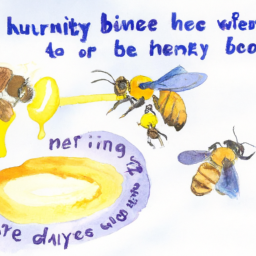 hurnity binee hec wier
to or be henky boo
ner iing
re daiyce